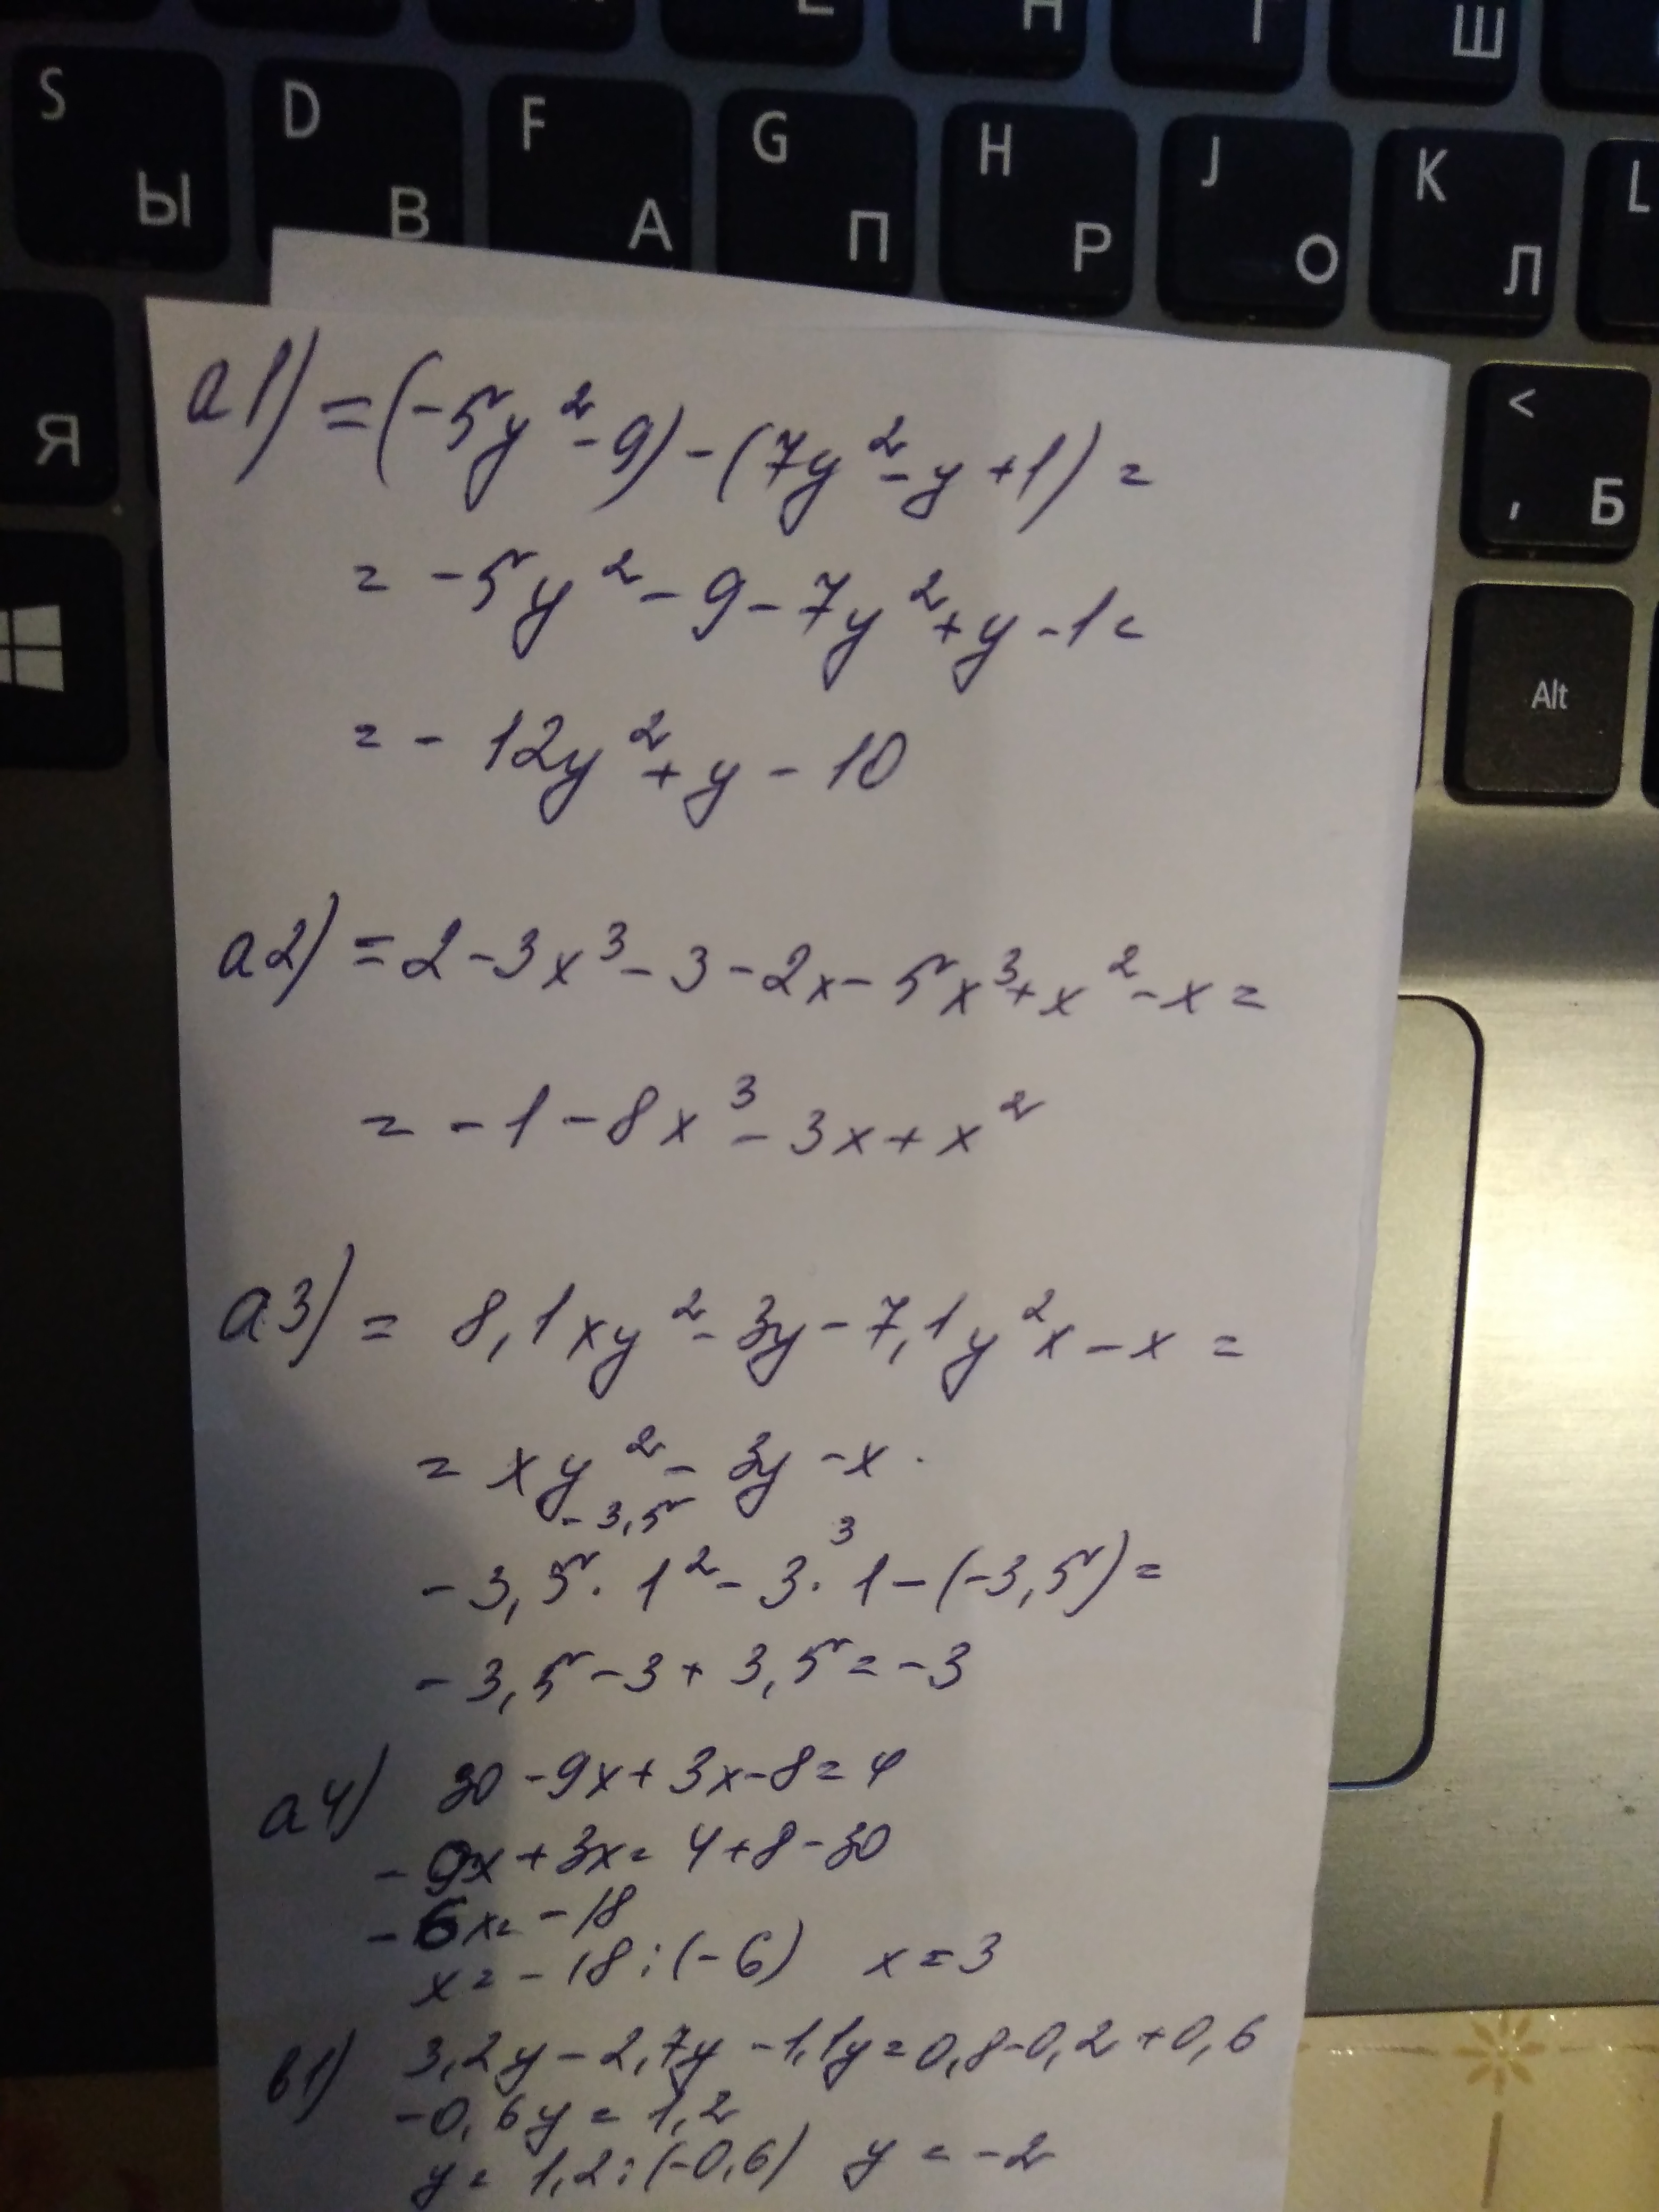 Е Н Г Ш
S Ы D В F А G П H Р J О K Л L
Я
< , Б
Alt
а1) = (-5y² - 9) - (7y² - y + 1) =
= -5y² - 9 - 7y² + y - 1 =
= - 12y² + y - 10
а2) = 2 - 3x³ - 3 - 2x - 5x³ + x² - x =
= - 1 - 8x³ - 3x + x²
а3) = 8,1xy² - 3y - 7,1y²x - x =
= xy² - 3y - x .
- 3,5 3
- 3,5 · 1² - 3 · 1 - (-3,5) =
- 3,5 - 3 + 3,5 = -3
а4) 30 - 9x + 3x - 8 = 4
- 9x + 3x = 4 + 8 - 30
- 6x = - 18
x = - 18 : (-6) x = 3
в1) 3,2y - 2,7y - 1,1y = 0,8 - 0,2 + 0,6
-0,6y = 1,2
y = 1,2 : (-0,6) y = -2